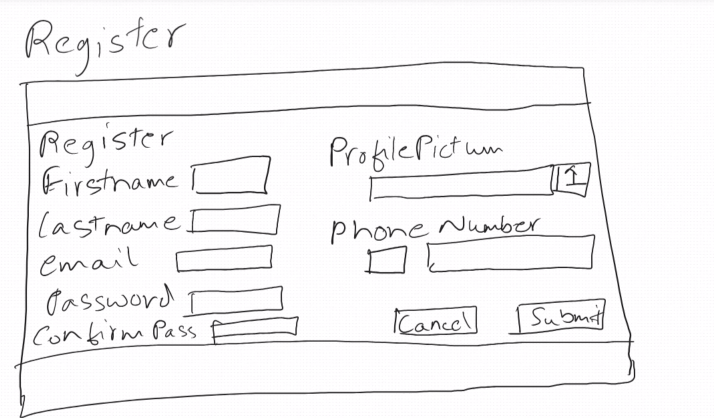 Register
Register
Firstname
Lastname
email
Password
Confirm Pass
Profile Pictum
Phone Number
Cancel
Submit